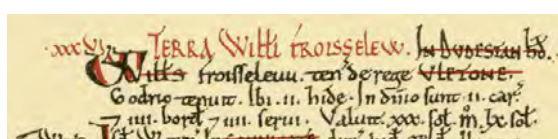 .xxxVI. TERRA Willi TROISSELEW. IN DVDESTAN HD.
Wills troisseleuu. ten de rege VLETONE.
Godric tenuit. Ibi .ii. hide. In dnio sunt .ii. car
7 iiii. bord 7 iiii. serui. Valuit .xxx. sol. m̊. lx. sol.